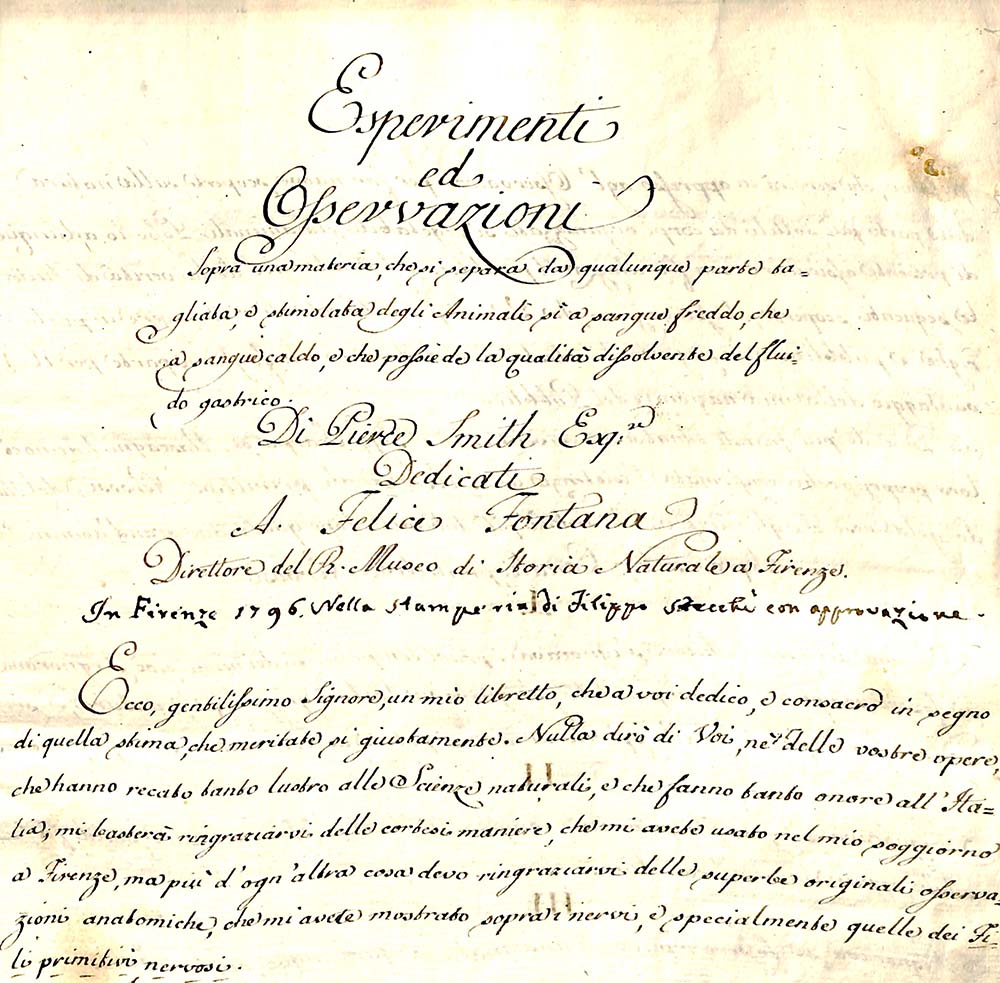 Esperimenti
ed
Osservazioni
Sopra una materia, che si separa da qualunque parte ta=
gliata, e stimolata degli Animali sì a sangue freddo, che
a sangue caldo, e che possiede la qualità dissolvente del flui=
do gastrico.
Di Pierce Smith Esq.re
Dedicati
A. Felice Fontana
Direttore del R. Museo di Storia Naturale a Firenze.
In Firenze 1796. Nella Stamperia di Filippo Stecchi con approvazione.
Ecco, gentilissimo Signore, un mio libretto, che a voi dedico, e consacro in segno
di quella stima, che meritate si giustamente. Nulla dirò di Voi, nè delle vostre opere,
che hanno recato tanto lustro alle Scienze naturali, e che fanno tanto onore all'Ita=
lia; mi basterà ringraziarvi delle cortesi maniere, che mi avete usato nel mio soggiorno
a Firenze, ma più d'ogn'altra cosa devo ringraziarvi delle superbe originali osserva=
zioni anatomiche, che mi avete mostrato sopra i nervi, e specialmente quelle dei Fi=
li primitivi nervosi.